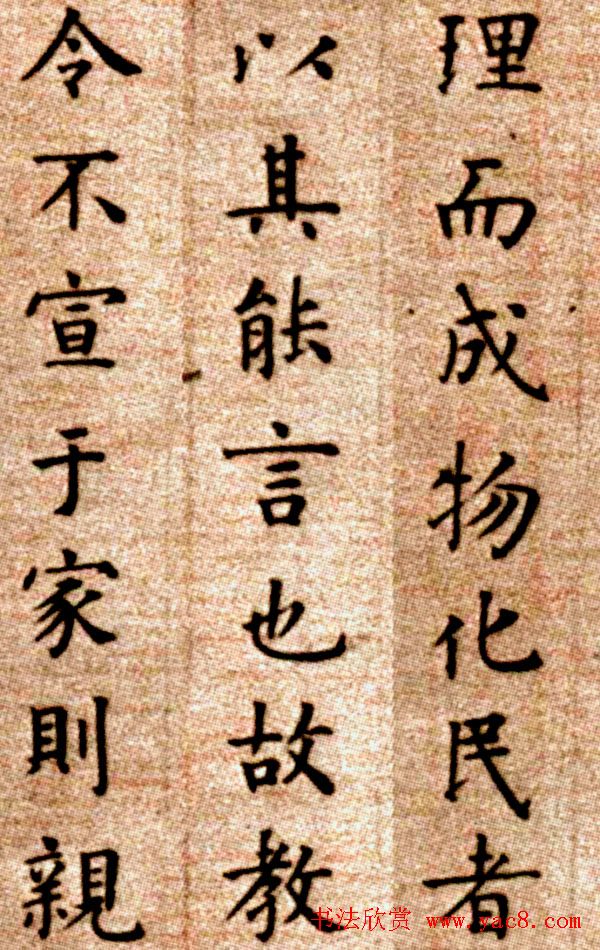 理而成物化民者
以其能言也故教
令不宣于家則親
书法欣赏 www.yac8.com